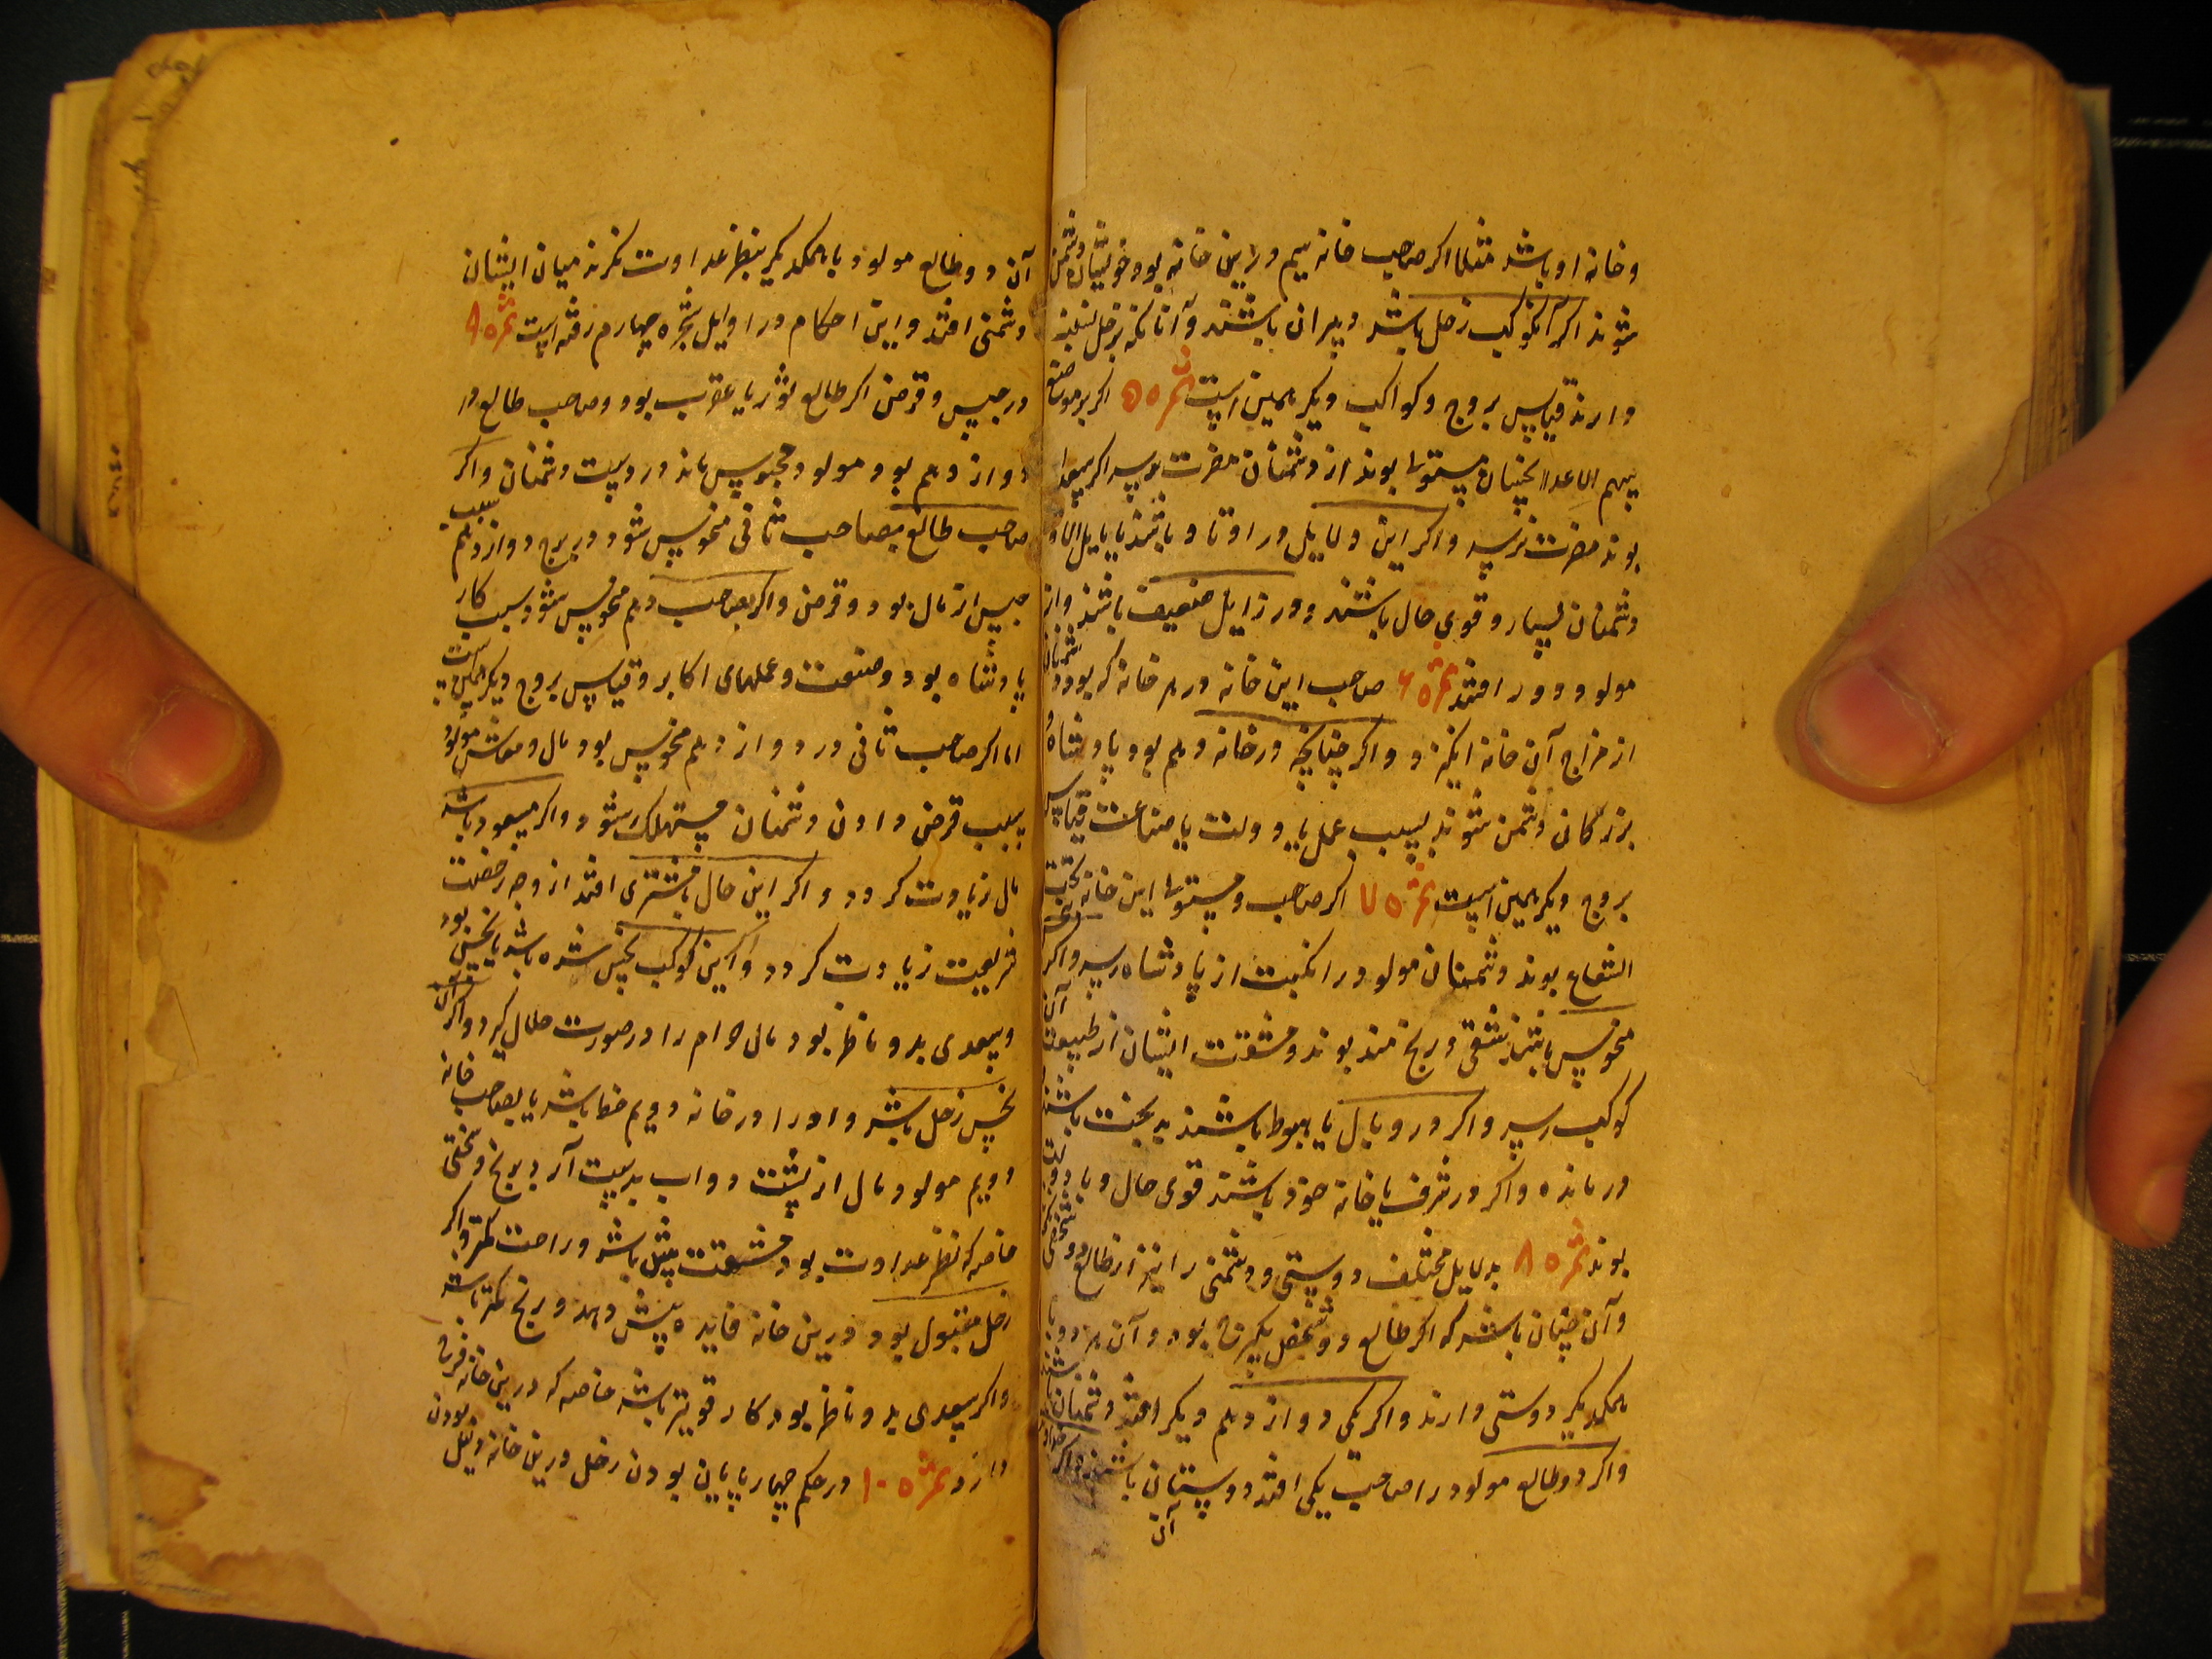 و خانه او باشد مثلا اکر صاحب خانه سیم درین خانه بود خویشان دشمن
شوند اکر آن کوکب زحل باشد پیران باشند و آنانکه بزحل
دارند قیاس بروج و کواکب دیکر همین است ثمره ۵ اکر بر مواضع
سهم الاعدا نحسان مستولی بوند از دشمنان مضرت رسد اکر سعدا
بوند مضرت نرسد و اکر این دلایل در اوتاد باشند یا مایل
دشمنان بسیار و قوی حال باشند و در زایل ضعیف باشند و از
مولود دور افتند ثمره ۶ صاحب این خانه در هر خانه که بود دشمنان
از مزاج آن خانه انکیزد و اکر چنانچه در خانه دهم بود پادشاه و
بزرکان دشمن شوند بسبب عمل یا دولت یا صناعت قیاس
بروج دیکر همین است ثمره ۷ اکر صاحب و مستولی این خانه تحت
الشعاع بوند دشمنان مولود را نکبت از پادشاه رسد و اکر
منحوس باشند شقی و رنج مند بوند و مشقت ایشان از طبیعت آن
کوکب رسد و اکر در وبال یا هبوط باشند بدبخت باشند
درمانده و اکر در شرف یا خانه خود باشند قوی حال و با دولت
بوند ثمره ۸ بدلایل مختلف دوستی و دشمنی را نیز از طالع دو شخص
و آن چنان باشد که اکر طالع دو شخص یک برج بود و آن هر دو با
همدیکر دوستی دارند و اکر یکی دوازدهم دیکر افتد دشمنان باشند
و اکر دو طالع مولود را صاحب یکی افتد دوستان باشند و اکر
آن
آن دو طالع مولود با همدیکر بنظر عداوت نکرند میان ایشان
دشمنی افتد و این احکام در اوایل شجره چهارم رفته است ثمره ۹
در حبس و قرض اکر طالع ثور یا عقرب بود و صاحب طالع در
دوازدهم بود مولود محبوس ماند در دست دشمنان و اکر
صاحب طالع بصاحب ثانی منحوس شود در برج دوازدهم سبب
حبس از مال بود و قرض و اکر بصاحب دهم منحوس شود سبب کار
پادشاه بود و صنعت و عملهای اکابر و قیاس بروج دیکر همین است
اما اکر صاحب ثانی در دوازدهم منحوس بود مال و معاش مولود
بسبب قرض دادن دشمنان مستهلک شود و اکر مسعود باشد
مال زیادت کردد و اکر این حال بمشتری افتد از وجه رخصت
شریعت زیادت کردد و اکر این کوکب نحس شده باشد یا نحس بود
و سعدی بدو ناظر بود مال حرام را در صورت حلال کیرد و اکر آن
نحس زحل باشد و او را در خانه دویم حظ باشد یا بصاحب خانه
دویم مولود مال از پشت دواب بدست آرد برنج و سختی
خاصه که نظر عداوت بود مشقت بیش باشد و راحت کمتر و اکر
زحل مقبول بود درین خانه فایده بیش دهد و رنج کمتر باشد
و اکر سعدی بدو ناظر بود کار قویتر باشد خاصه که درین خانه فرح
دارد ثمره ۱۰ در حکم چهارپایان بودن زحل درین خانه دلیل بودن